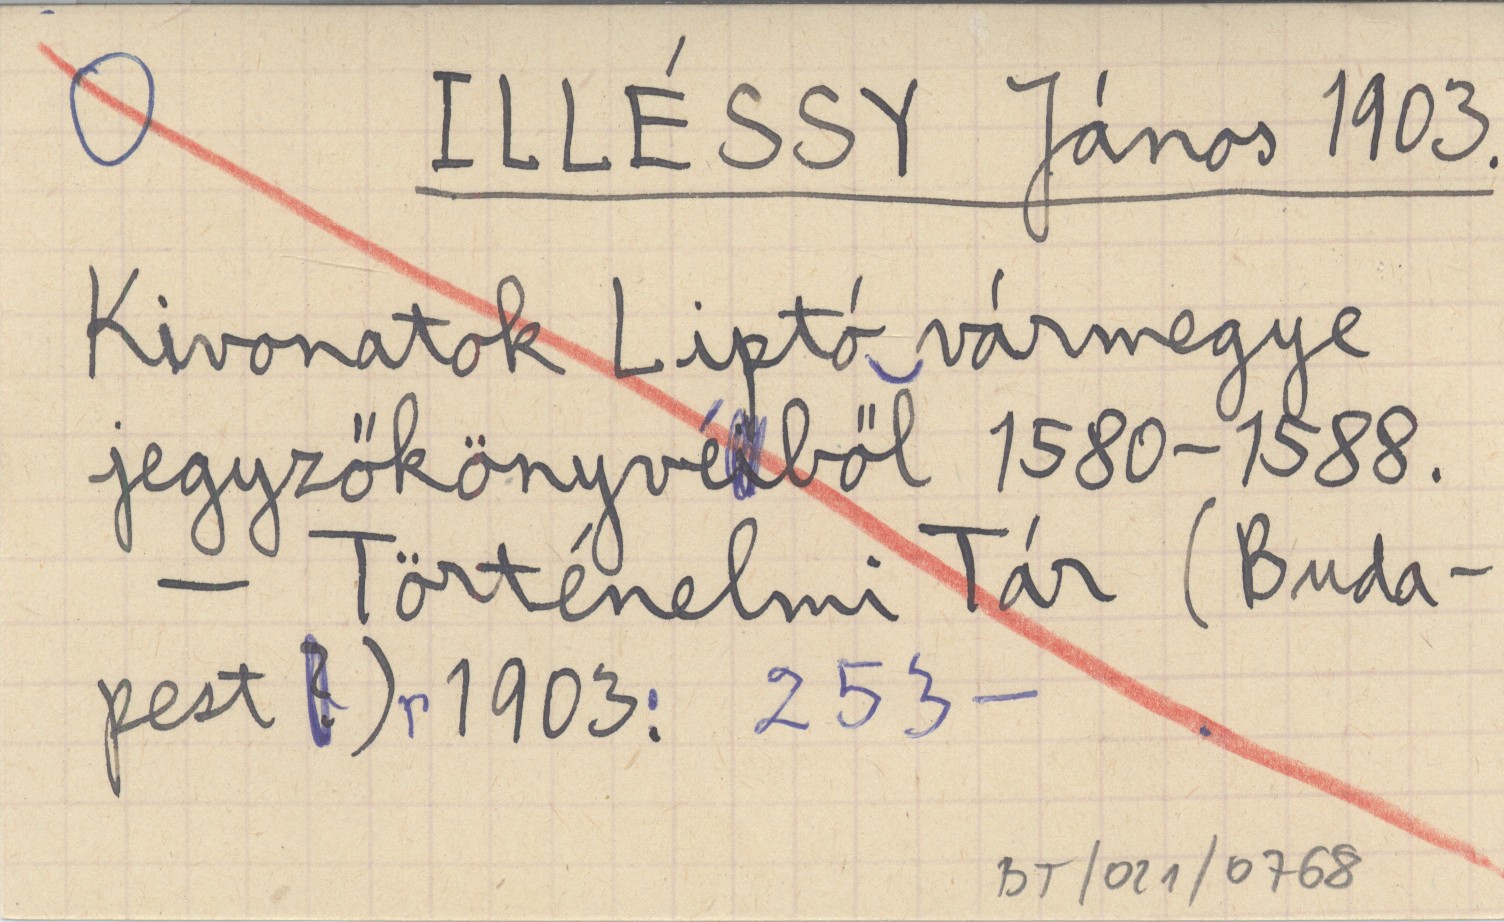 ILLÉSSY János 1903.
Kivonatok Liptó vármegye
jegyzőkönyvéből 1580-1588.
— Történelmi Tár (Buda-
pest), 1903: 253-
BT/021/0768